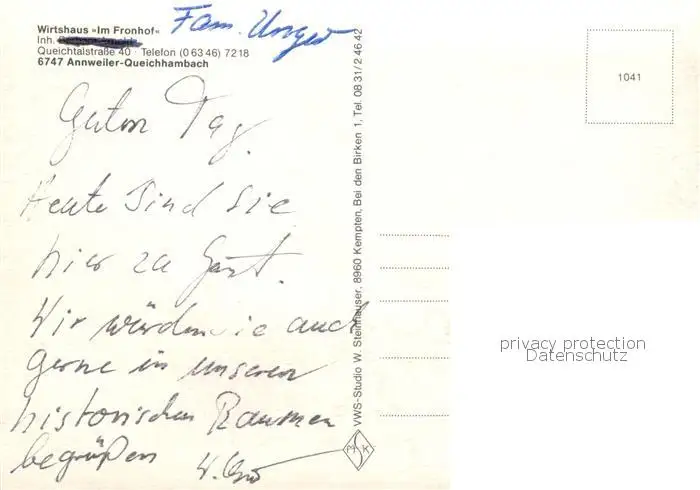 Fam. Unger
Wirtshaus »Im Fronhof«
Inh.
Queichtalstraße 40 · Telefon (0 63 46) 72 18
6747 Annweiler-Queichhambach
1041
Guten Tag.
Heute sind sie
hier zu Gast.
Wir würden sie auch
gerne in unseren
historischen Räumen
begrüßen
VWS-Studio W. Steinhauser, 8960 Kempten, Bei den Birken 1, Tel. 08 31/2 46 42
privacy protection
Datenschutz